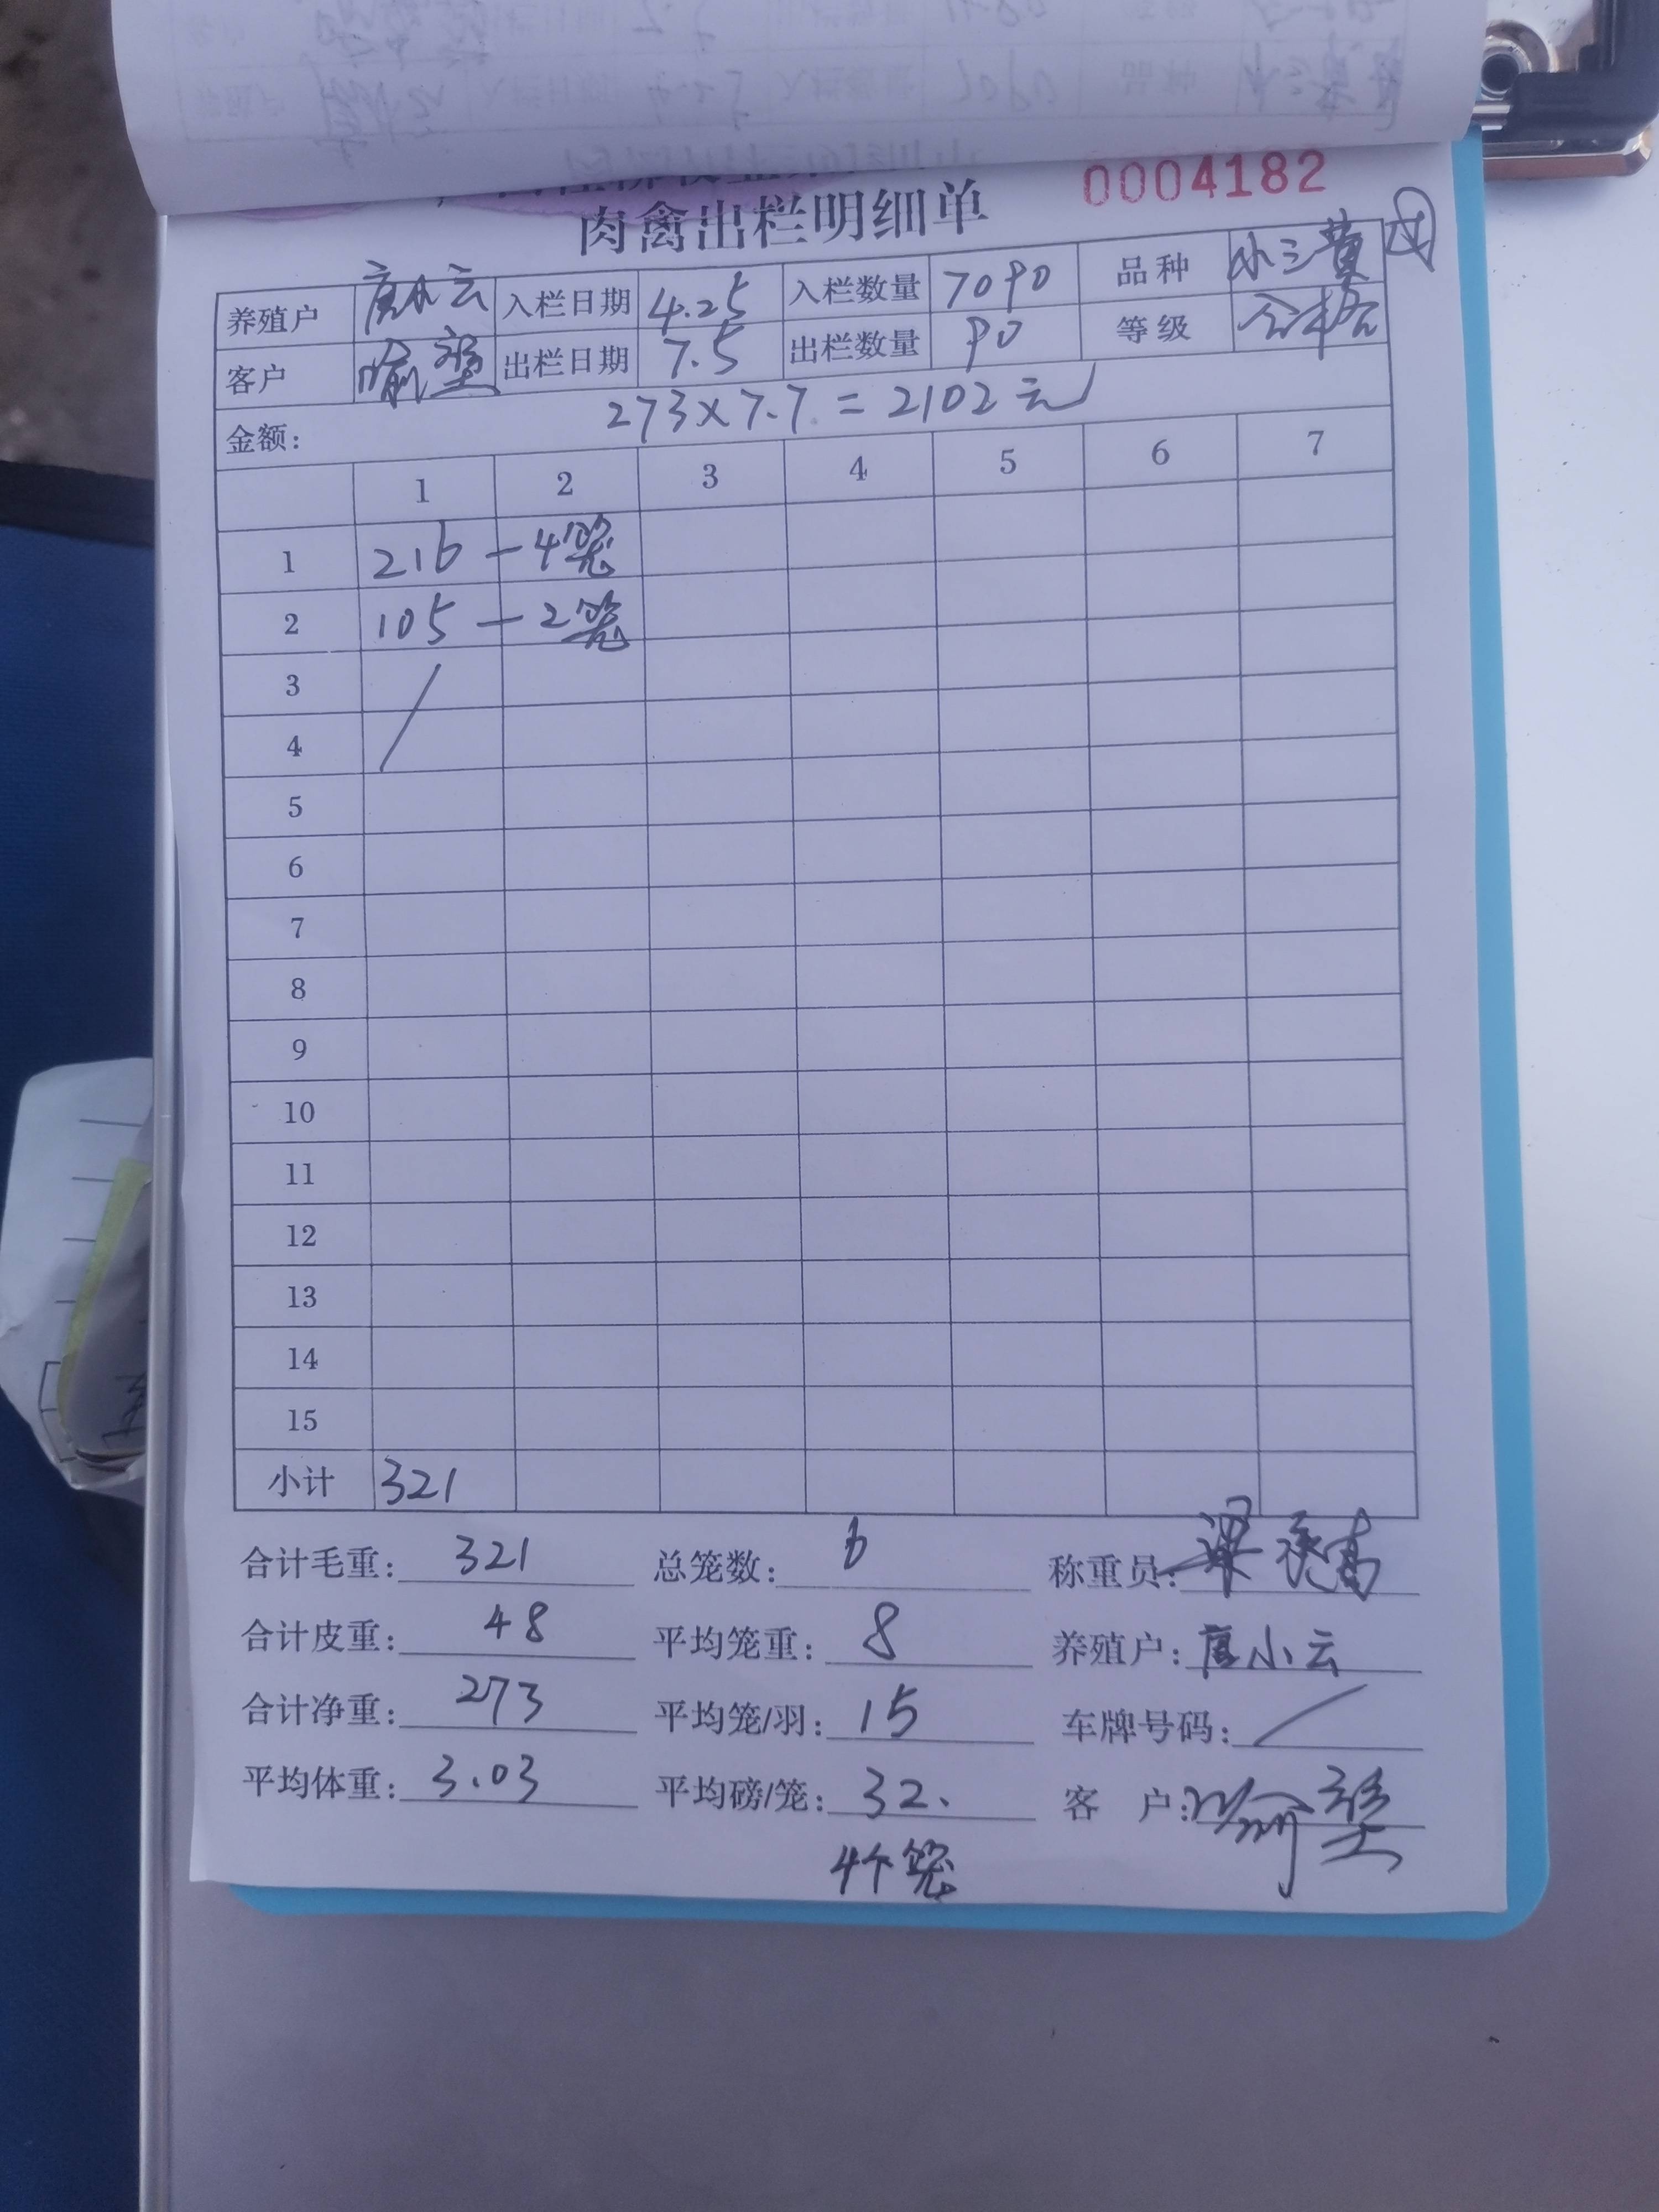 0004182
肉禽出栏明细单
养殖户 唐小云 入栏日期 4.25 入栏数量 7090 品种 小三黄 母
客户 喻坚 出栏日期 7.5 出栏数量 90 等级 合格
金额: 273×7.7=2102元
1 2 3 4 5 6 7
1 216 — 4笼
2 105 — 2笼
3
4
5
6
7
8
9
10
11
12
13
14
15
小计 321
合计毛重: 321 总笼数: 6 称重员: 梁
合计皮重: 48 平均笼重: 8 养殖户: 唐小云
合计净重: 273 平均笼/羽: 15 车牌号码: /
平均体重: 3.03 平均磅/笼: 32. 客 户: 喻坚
4个笼